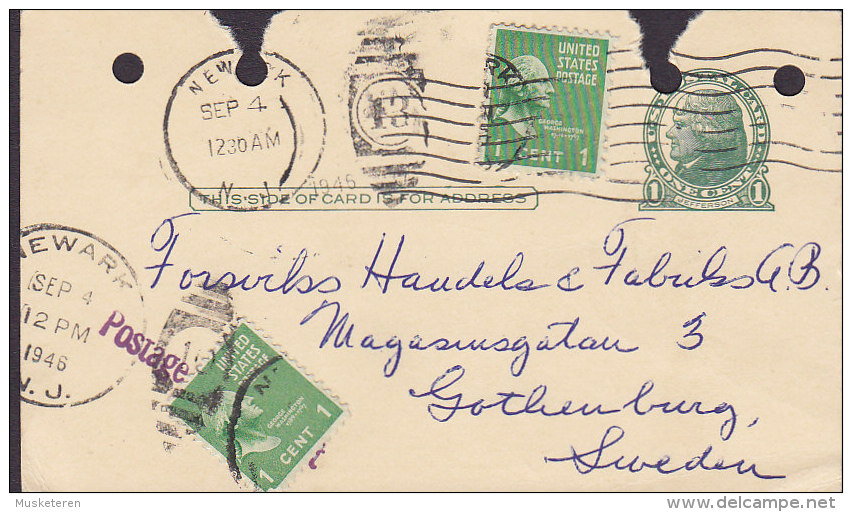 NEWARK
SEP 4
1230 AM
N. J.
1946
13
UNITED
STATES
POSTAGE
GEORGE
WASHINGTON
1 CENT 1
ONE CENT
1 1
JEFFERSON
THIS SIDE OF CARD IS FOR ADDRESS
Forsviks Handels & Fabriks A.B.
Magasinsgatan 3
Gothenburg,
Sweden
NEWARK
SEP 4
12 PM
1946
N. J.
Postage
UNITED
STATES
POSTAGE
GEORGE
WASHINGTON
1 CENT 1
Musketeren
delcampe.net